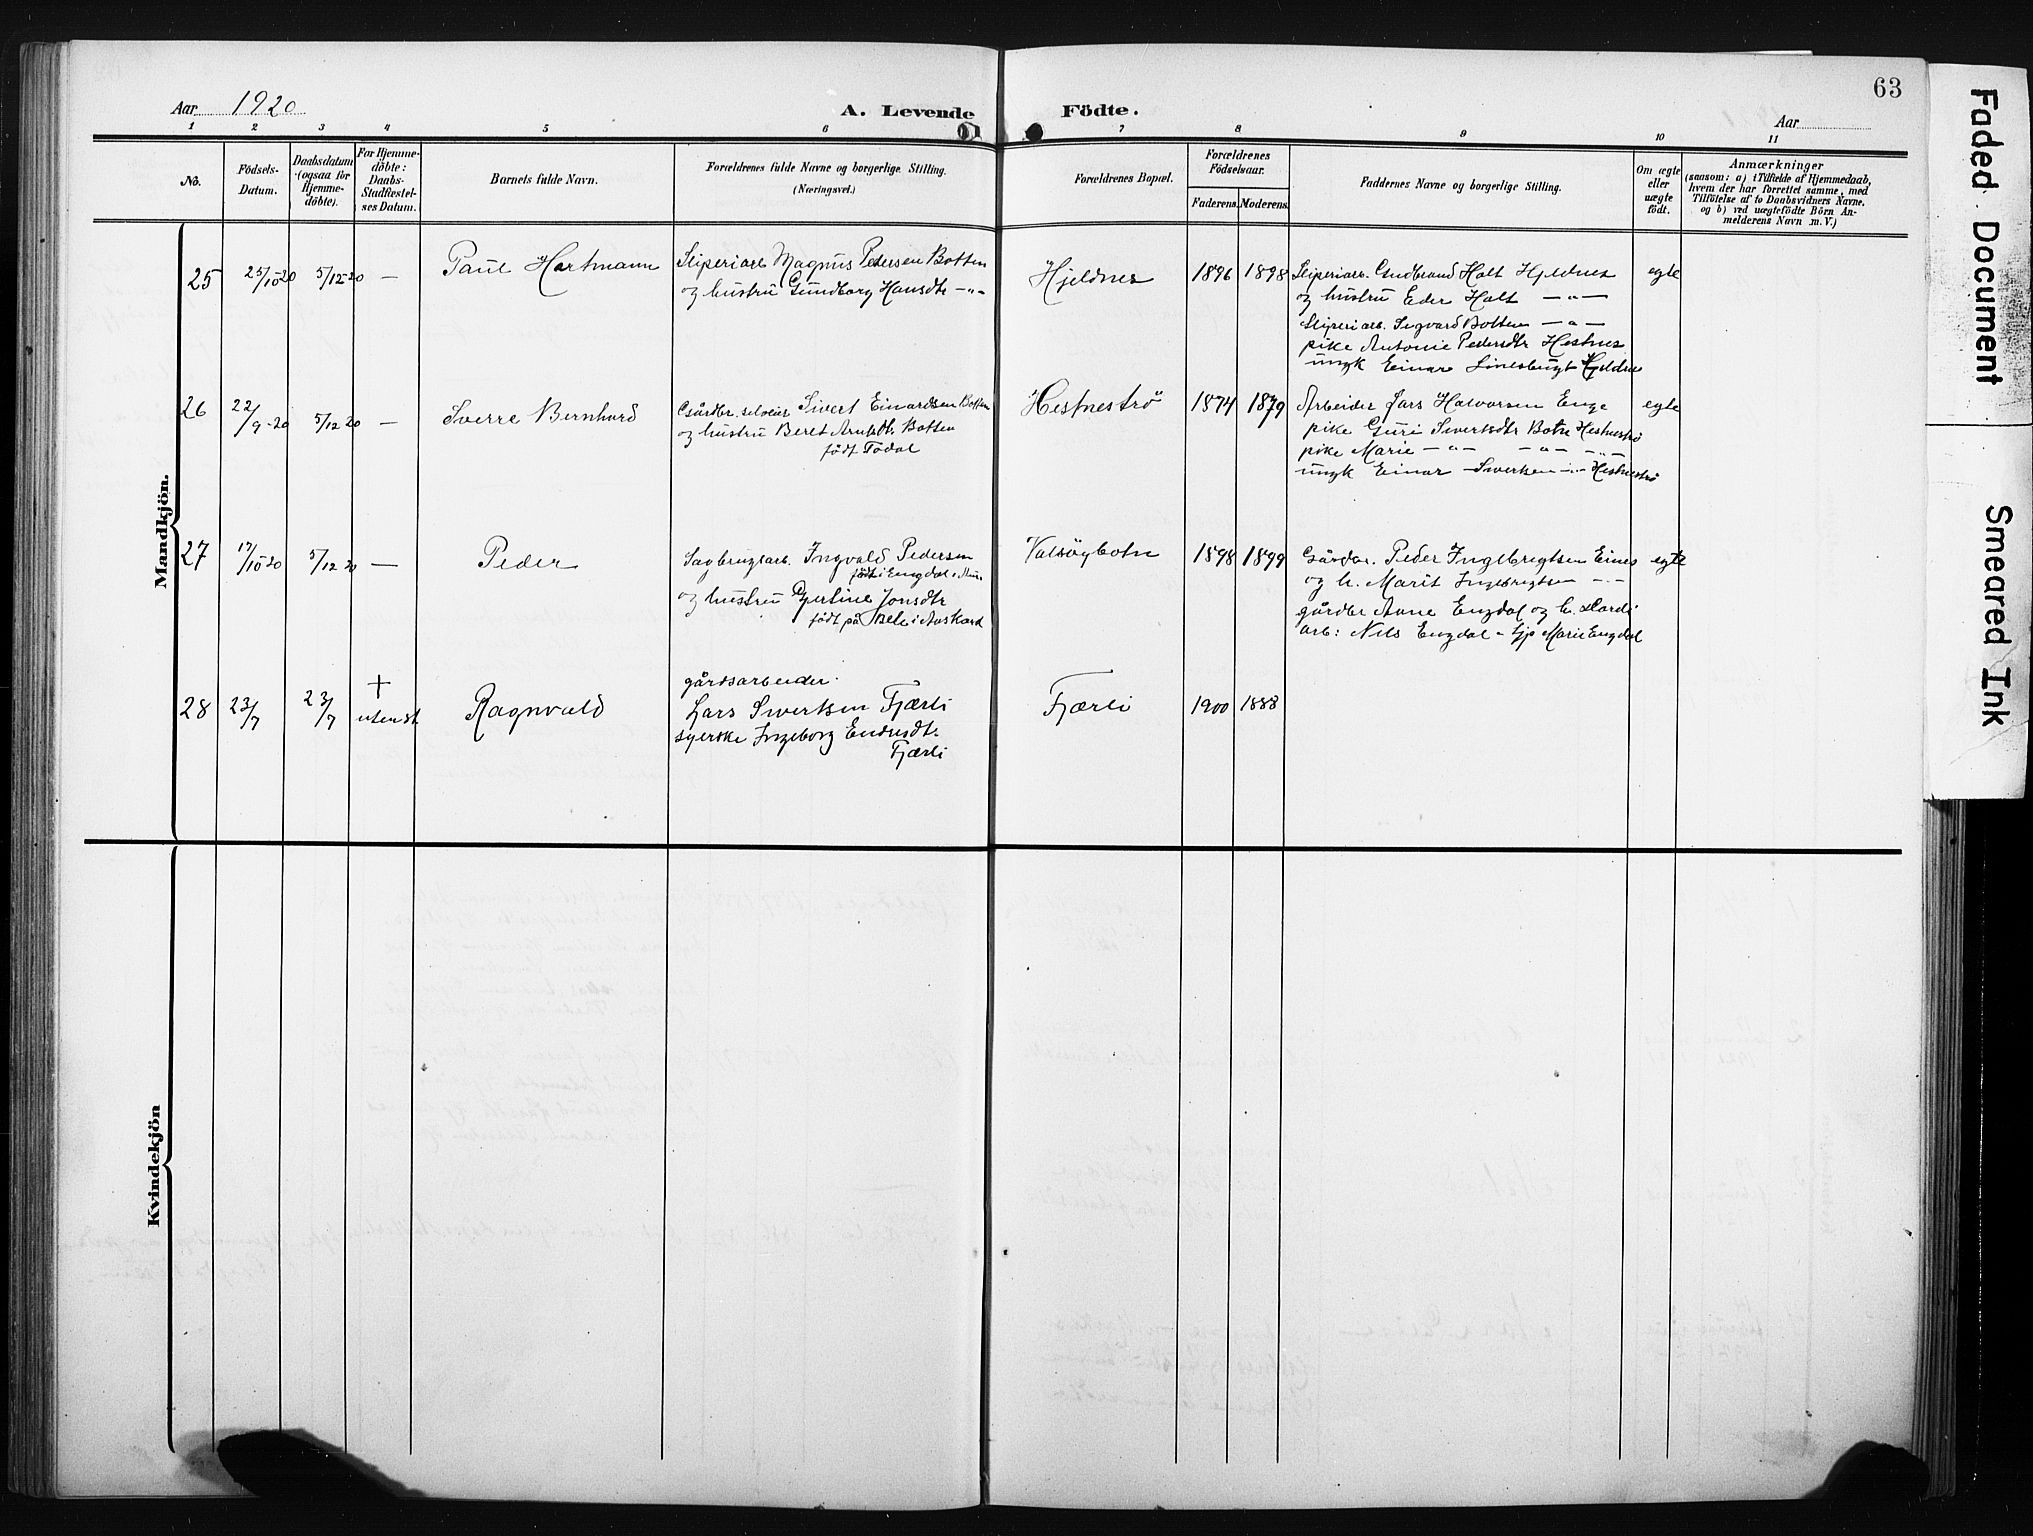 63
Aar 1920
A. Levende Födte.
Aar
1 2 3 4 5 6 7 8 9 10 11
No.
Födsels-Datum.
Daabsdatum (ogsaa for Hjemme-döbte).
For Hjemme-döbte: Daabs-Stadfæstel-ses Datum.
Barnets fulde Navn.
Forældrenes fulde Navne og borgerlige Stilling.
(Næringsvei.)
Forældrenes Bopæl.
Forældrenes Födselsaar.
Faderens. Moderens.
Faddernes Navne og borgerlige Stilling.
Om ægte eller uægte födt.
Anmærkninger
(saasom: a) i Tilfælde af Hjemmedaab, hvem der har forrettet samme, med Tilföielse af to Daabsvidners Navne, og b) ved uægtefödte Börn An-melderens Navn m. V.)
Mandkjön.
25 25/10-20 5/12-20 — Paul Hartmann
Sliperiarb Magnus Pedersen Botten
og hustru Gundborg Hansdtr -"-
Hjeldnes 1896 1898
Sliperiarb. Gudbrand Holt Hjeldnes
og hustru Eder Holt —"—
Sliperiarb. Sigvard Botten —"—
pike Antonie Pedersdtr Hestnes
ungk Einar Hjeldnes
egte
26 22/9-20 5/12 20 — Sverre Bernhard
Gårdbr. selveier Sivert Einardsen Botten
og hustru Beret Botten
født Todal
Hestnestrø 1874 1879
Arbeider Lars Halvorsen Enge
pike Guri Sivertsdtr Botn Hestnestrø
pike Marie —"— —"— —"—
ungk Einar Sivertsen —"— Hestnestrø
egte
27 17/10-20 5/12 20 — Peder
Sagbrugsarb. Ingvald Pedersen
født i Engdal i
og hustru Gjertine Jonsdtr
født på Bele i Auskard
Valsøybotn 1898 1899
Gårdbr. Peder Ingebrigtsen Eines
og h. Marit Ingebrigtsen -"-
gårdbr Arne Engdal og h. Dordi
arb: Nils Engdal - Marie Engdal
egte
28 23/7 23/7 + uten st Ragnvald
gårdsarbeider.
Lars Sivertsen Fjærli
syerske Ingeborg Endresdtr.
Fjærli
Fjærli 1900 1888
Kvindekjön
Faded Document
Smeared Ink